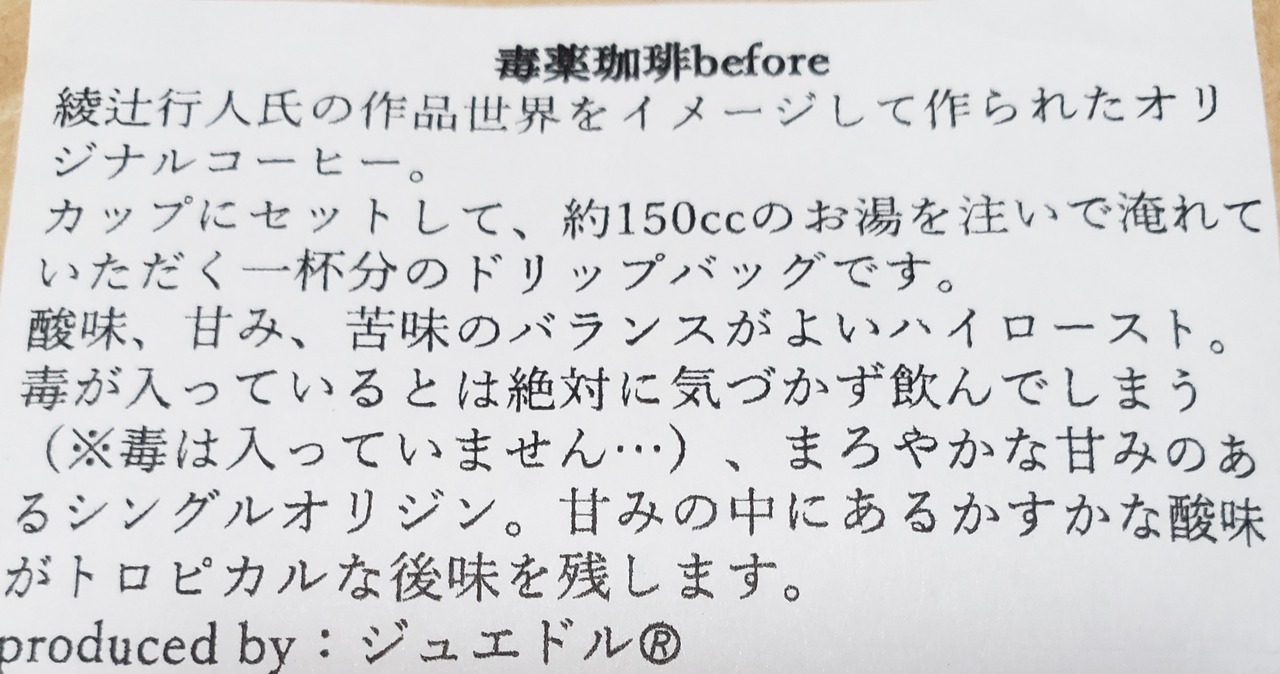 毒薬珈琲before
綾辻行人氏の作品世界をイメージして作られたオリ
ジナルコーヒー。
カップにセットして、約150ccのお湯を注いで淹れて
いただく一杯分のドリップバッグです。
酸味、甘み、苦味のバランスがよいハイロースト。
毒が入っているとは絶対に気づかず飲んでしまう
（※毒は入っていません…）、まろやかな甘みのあ
るシングルオリジン。甘みの中にあるかすかな酸味
がトロピカルな後味を残します。
produced by：ジュエドル®